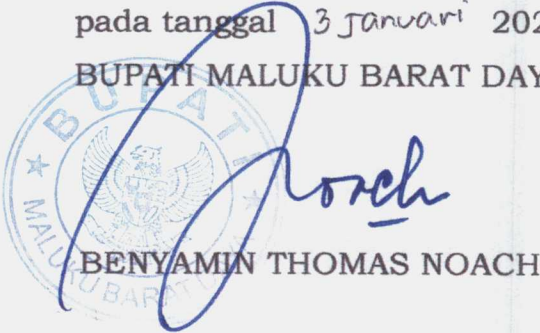 pada tanggal 3 Januari 202
BUPATI MALUKU BARAT DAY
BUPATI
MALUKU BARAT
Noach
BENYAMIN THOMAS NOACH